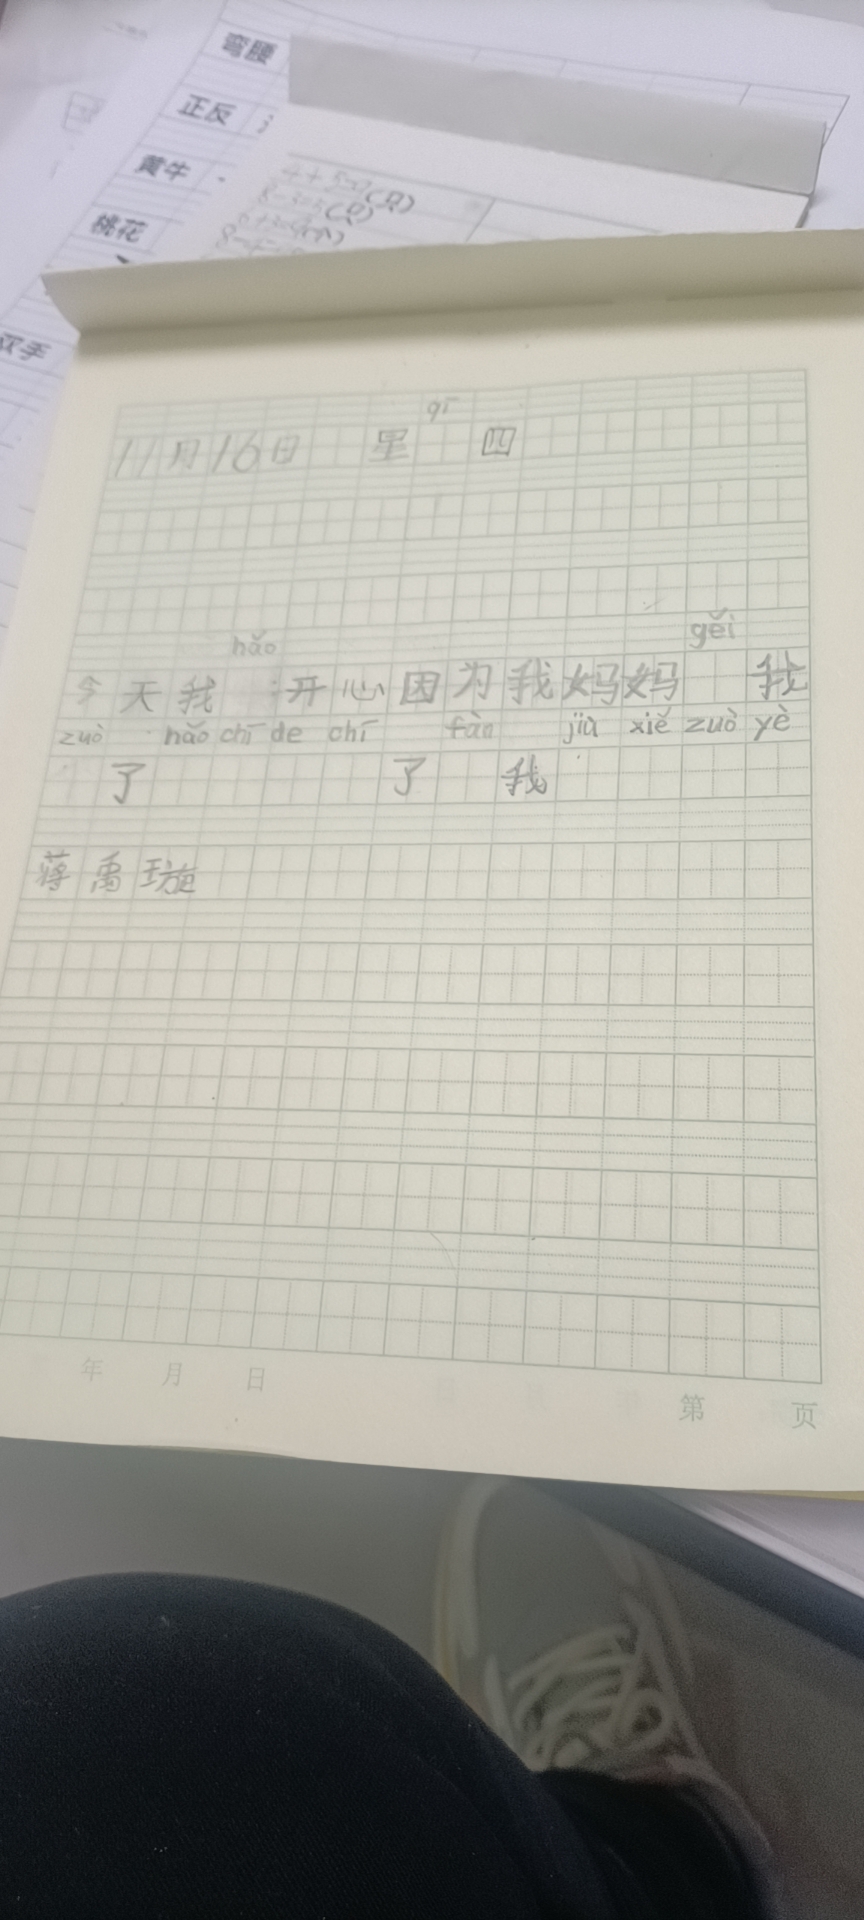 弯腰
正反
黄牛
桃花
双手
qī
11月16日 星 四
hǎo
gěi
今天我 开心因为我妈妈 我
zuò hǎo chī de chī fàn jiù xiě zuò yè
了 了 我
蒋禹璇
年 月 日
第 页